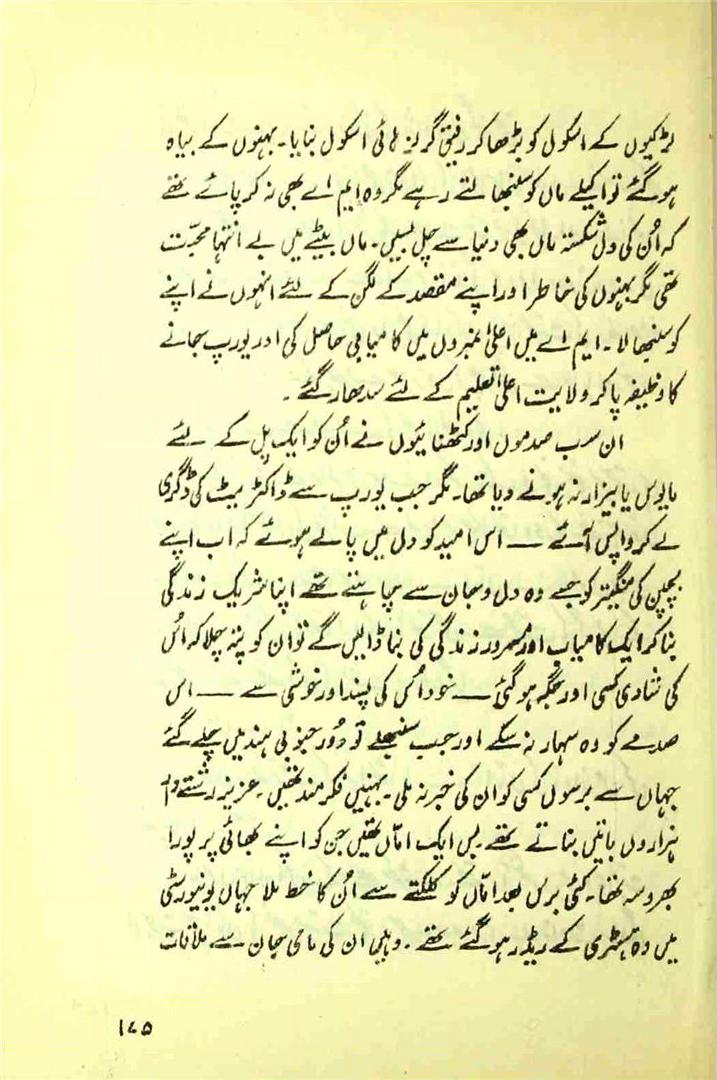 لڑکیوں کے اسکول کو بڑھا کر رفیق گرلز ہائی اسکول بنایا۔ بہنوں کے بیاہ
ہو گئے تو اکیلے ماں کو سنبھالتے رہے مگر وہ ایم اے بھی نہ کر پائے تھے
کہ اُن کی دل شکستہ ماں بھی دنیا سے چل بسیں۔ ماں بیٹے میں بے انتہا محبّت
تھی مگر بہنوں کی خاطر اور اپنے مقصد کے لگن کے لئے انہوں نے اپنے
کو سنبھالا۔ ایم اے میں اعلیٰ نمبروں میں کامیابی حاصل کی اور یورپ جانے
کا وظیفہ پا کر ولایت اعلیٰ تعلیم کے لئے سدھار گئے۔
ان سب صدموں اور کٹھنائیوں نے اُن کو ایک پل کے لئے
مایوس یا بیزار نہ ہونے دیا تھا۔ مگر جب یورپ سے ڈاکٹریٹ کی ڈگری
لے کر واپس آئے — اس امید کو دل میں پالے ہوئے کہ اب اپنے
بچپن کی منگیتر کو جسے وہ دل و جان سے چاہتے تھے اپنا شریک زندگی
بنا کر ایک کامیاب اور مسرور زندگی کی بنا ڈالیں گے تو ان کو پتہ چلا کہ اُس
کی شادی کسی اور جگہ ہو گئی — خود اُس کی پسند اور خوشی سے — اس
صدمے کو وہ سہار نہ سکے اور جب سنبھلے تو دُور جنوبی ہند میں چلے گئے
جہاں سے برسوں کسی کو ان کی خبر نہ ملی۔ بہنیں فکرمند تھیں۔ عزیز رشتے دار
ہزاروں باتیں بناتے تھے۔ بس ایک امّاں تھیں جن کو اپنے بھائی پر پورا
بھروسہ تھا۔ کئی برس بعد امّاں کو کلکتے سے اُن کا خط ملا جہاں یونیورسٹی
میں وہ ہسٹری کے ریڈر ہو گئے تھے۔ وہیں ان کی مامی جان سے ملاقات
۱۴۵